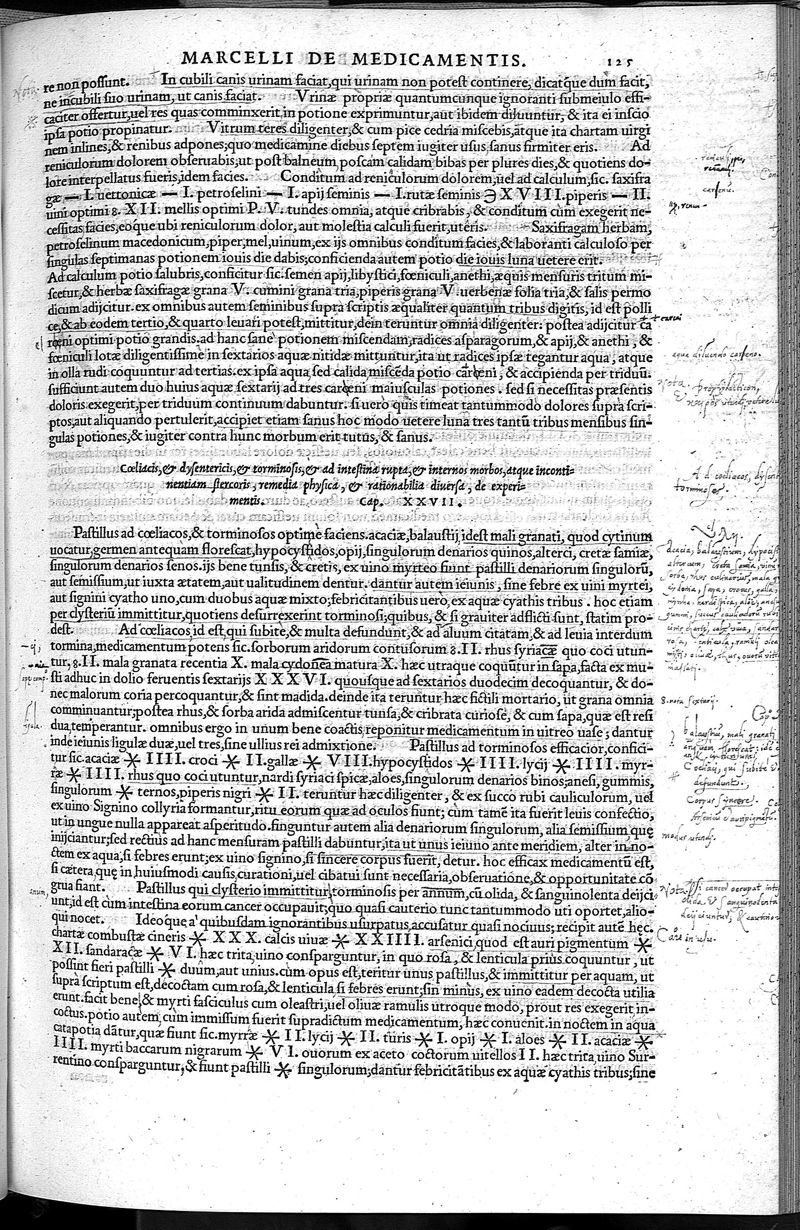 MARCELLI DE MEDICAMENTIS. 125
re non possunt. In cubili canis urinam faciat, qui urinam non potest continere, dicatq́ue dum facit,
ne in cubili suo urinam, ut canis faciat. Vrinæ propriæ quantumcunque ignoranti submeiulo effi-
caciter offertur, uel res quas comminxerit, in potione exprimuntur, aut ibidem diluuntur, & ita ei inscio
ipsa potio propinatur. Vitrum teres diligenter, & cum pice cedria miscebis, atque ita chartam uirgi
nem inlines, & renibus adpones; quo medicamine diebus septem iugiter usus, sanus firmiter eris. Ad
reniculorum dolorem obseruabis, ut post balneum, poscam calidam bibas per plures dies, & quotiens do-
lore interpellatus fueris, idem facies. Conditum ad reniculorum dolorem, uel ad calculum, sic. saxifra
gæ — I. uettonicæ — I. petroselini — I. apij seminis — I. rutæ seminis ℈ XVIII. piperis — II.
uini optimi 8. XII. mellis optimi P. V. tundes omnia, atque cribrabis, & conditum cùm exegerit ne-
cessitas facies, eoque ubi reniculorum dolor, aut molestia calculi fuerit, utêris. Saxifragam herbam,
petroselinum macedonicum, piper, mel, uinum, ex ijs omnibus conditum facies, & laboranti calculoso per
singulas septimanas potionem iouis die dabis; conficienda autem potio die iouis luna uetere erit.
Ad calculum potio salubris, conficitur sic. semen apij, libystici, fœniculi, anethi, æquis mensuris tritum mi-
scetur, & herbæ saxifragæ grana V. cumini grana tria, piperis grana V. uerbenæ folia tria, & salis permo
dicum adijcitur. ex omnibus autem seminibus supra scriptis æqualiter quantum tribus digitis, id est polli
ce, & ab eodem tertio, & quarto leuari potest, mittitur, dein teruntur omnia diligenter: postea adijcitur ca
rœni optimi potio grandis. ad hanc sanè potionem miscendam, radices asparagorum, & apij, & anethi, &
fœniculi lotæ diligentissime in sextarios aquæ nitidæ mittuntur, ita ut radices ipsæ tegantur aqua, atque
in olla rudi coquuntur ad tertias. ex ipsa aqua, sed calida miscēda potio carœni, & accipienda per triduū.
sufficiunt autem duo huius aquæ sextarij ad tres carœni maiusculas potiones. sed si necessitas præsentis
doloris exegerit, per triduum continuum dabuntur. si uerò quis timeat tantummodo dolores supra scri-
ptos, aut aliquando pertulerit, accipiet etiam sanus hoc modo uetere luna tres tantū tribus mensibus sin-
gulas potiones, & iugiter contra hunc morbum erit tutus, & sanus.
Cœliacis, & dysentericis, & torminosis, & ad intestina rupta, & internos morbos, atque inconti-
nentiam stercoris, remedia physica, & rationabilia diuersa, de experi-
mentis. Cap. XXVII.
Pastillus ad cœliacos, & torminosos optime faciens. acaciæ, balaustij, idest mali granati, quod cytinum
uocatur, germen antequam florescat, hypocystidos, opij, singulorum denarios quinos, alterci, cretæ samiæ,
singulorum denarios senos. ijs bene tunsis, & cretis, ex uino myrteo fiunt pastilli denariorum singulorū,
aut semissium, ut iuxta ætatem, aut ualitudinem dentur. dantur autem ieiunis, sine febre ex uini myrtei,
aut signini cyatho uno, cum duobus aquæ mixto; febricitantibus uerò, ex aquæ cyathis tribus. hoc etiam
per clysteriū immittitur, quotiens desurrexerint torminosi; quibus, & si grauiter adflicti sunt, statim pro-
dest. Ad cœliacos, id est, qui subite, & multa defundunt, & ad aluum citatam, & ad leuia interdum
tormina, medicamentum potens sic. sorborum aridorum contusorum 8. II. rhus syriacæ quo coci utun-
tur, 8. II. mala granata recentia X. mala cydonea matura X. hæc utraque coquūtur in sapa, facta ex mu-
sti adhuc in dolio feruentis sextarijs XXXVI. quousque ad sextarios duodecim decoquantur, & do-
nec malorum coria percoquantur, & sint madida. deinde ita teruntur hæc fictili mortario, ut grana omnia
comminuantur; postea rhus, & sorba arida admiscentur tunsa, & cribrata curiosè, & cum sapa, quæ est resi
dua, temperantur. omnibus ergo in unum bene coactis, reponitur medicamentum in uitreo uase; dantur
inde ieiunis ligulæ duæ, uel tres, sine ullius rei admixtione. Pastillus ad torminosos efficacior, confici-
tur sic. acaciæ ✻ IIII. croci ✻ II. gallæ ✻ VIII. hypocystidos ✻ IIII. lycij ✻ IIII. myr-
ræ ✻ IIII. rhus quo coci utuntur, nardi syriaci spicæ, aloes, singulorum denarios binos; anesi, gummis,
singulorum ✻ ternos, piperis nigri ✻ II. teruntur hæc diligenter, & ex succo rubi cauliculorum, uel
ex uino Signino collyria formantur, ritu eorum quæ ad oculos fiunt; cùm tamē ita fuerit leuis confectio,
ut in ungue nulla appareat asperitudo. finguntur autem alia denariorum singulorum, alia semissium, quę
inijciantur; sed rectius ad hanc mensuram pastilli dabuntur, ita ut unus ieiuno ante meridiem, alter in no-
ctem ex aqua, si febres erunt; ex uino signino, si sincere corpus fuerit, detur. hoc efficax medicamentū est,
si cætera, quę in huiusmodi causis, curationi, uel cibatui sunt necessaria, obseruatione, & opportunitate cō
grua fiant. Pastillus qui clysterio immittitur, torminosis per annum, cū olida, & sanguinolenta deijci
unt, id est cum intestina eorum cancer occupauit; quo quasi cauterio tunc tantummodo uti oportet, alio-
qui nocet. Ideoq́ue à quibusdam ignorantibus usurpatus, accusatur quasi nociuus; recipit autē hęc.
chartæ combustæ cineris ✻ XXX. calcis uiuæ ✻ XXIIII. arsenici, quod est auri pigmentum ✻
XII. sandaracæ ✻ VI. hæc trita, uino consparguntur, in quo rosa, & lenticula prius coquuntur, ut
possint fieri pastilli ✻ duūm, aut unius. cùm opus est, teritur unus pastillus, & immittitur per aquam, ut
supra scriptum est, decoctam cum rosa, & lenticula si febres erunt; sin minus, ex uino eadem decocta utilia
erunt. facit bene, & myrti fasciculus cum oleastri, uel oliuæ ramulis utroque modo, prout res exegerit in-
coctus. potio autem, cùm immissum fuerit supradictum medicamentum, hæc conuenit. in noctem in aqua
catapotia dātur, quæ fiunt sic. myrræ ✻ II. lycij ✻ II. turis ✻ I. opij ✻ I. aloes ✻ II. acaciæ ✻
IIII. myrti baccarum nigrarum ✻ VI. ouorum ex aceto coctorum uitellos II. hæc trita, uino Sur-
rentino consparguntur, & fiunt pastilli ✻ singulorum; dantur febricitātibus ex aquæ cyathis tribus; sine
Nota
carœnū.
aque diluendo carœno.
Nota
Ad cœliacos, dysen
torminosos.
8. nota sextarij.
balaustiū, mali granati
Corpus syncere.
modus utendj.
Nota
si cancer occupat inte
olida & sanguinolenta
deijciuntur,